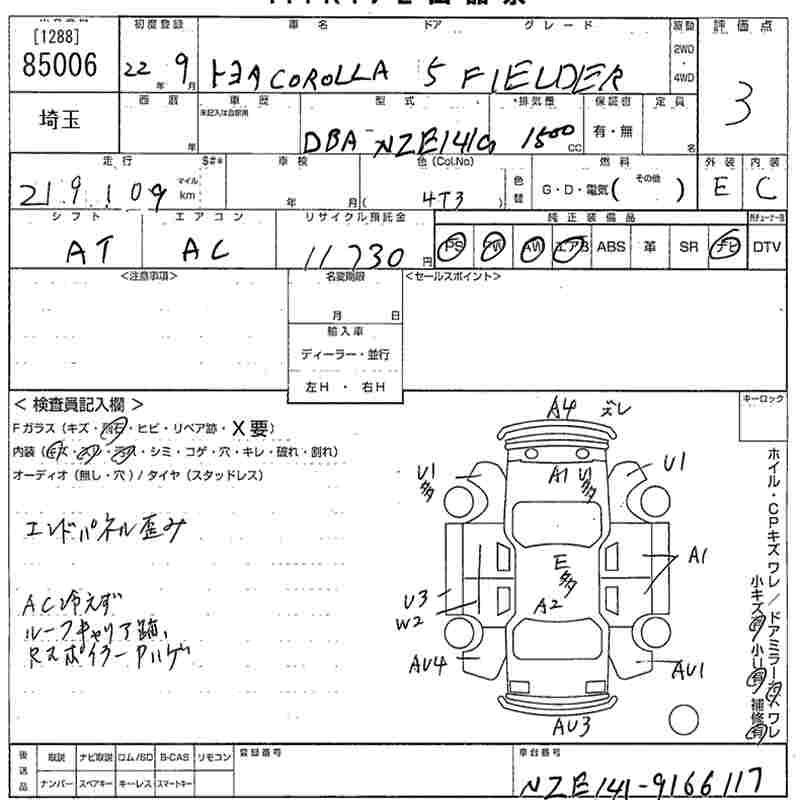 [1288]
85006
初度登録
22年 9月
車名 ドア グレード
トヨタ COROLLA 5 FIELDER
駆動
2WD
・
4WD
評価点
3
埼玉
西暦
年
車歴
未記入は自家用
型式
DBA-NZE141G
排気量
1500 CC
保証書
有・無
定員
名
走行 $#*
219109 マイル km
車検
年 月
色 (Col.No)
( 4T3 )
色替
燃料
G・D・電気( その他 )
外装
E
内装
C
シフト
AT
エアコン
AC
リサイクル預託金
11730 円
純正装備品
PS PW AW エアB ABS 革 SR ナビ
DTV
<注意事項>
名変期限
月 日
輸入車
ディーラー・並行
左H ・ 右H
<セールスポイント>
< 検査員記入欄 >
Fガラス (キズ・飛石・ヒビ・リペア跡・X要)
内装 (キズ・スレ・汚れ・シミ・コゲ・穴・キレ・破れ・割れ)
オーディオ (無し・穴) / タイヤ (スタッドレス)
エンドパネル歪み
AC冷えず
ルーフキャリア跡
RスポイラーPハゲ
A4 ズレ
U1 多
A1 U1 多
U1
A1
E 多
A2
U3
W2
AU4
AU1
AU3
キーロック
ホイル・CPキズ ワレ / ドアミラーキズ ワレ
小キズ有 小U有 補修有
後送品
取説 ナビ取説 ロム/SD B-CAS リモコン
ナンバー スペアキー キーレス スマートキー
登録番号
車台番号
NZE141-9166117